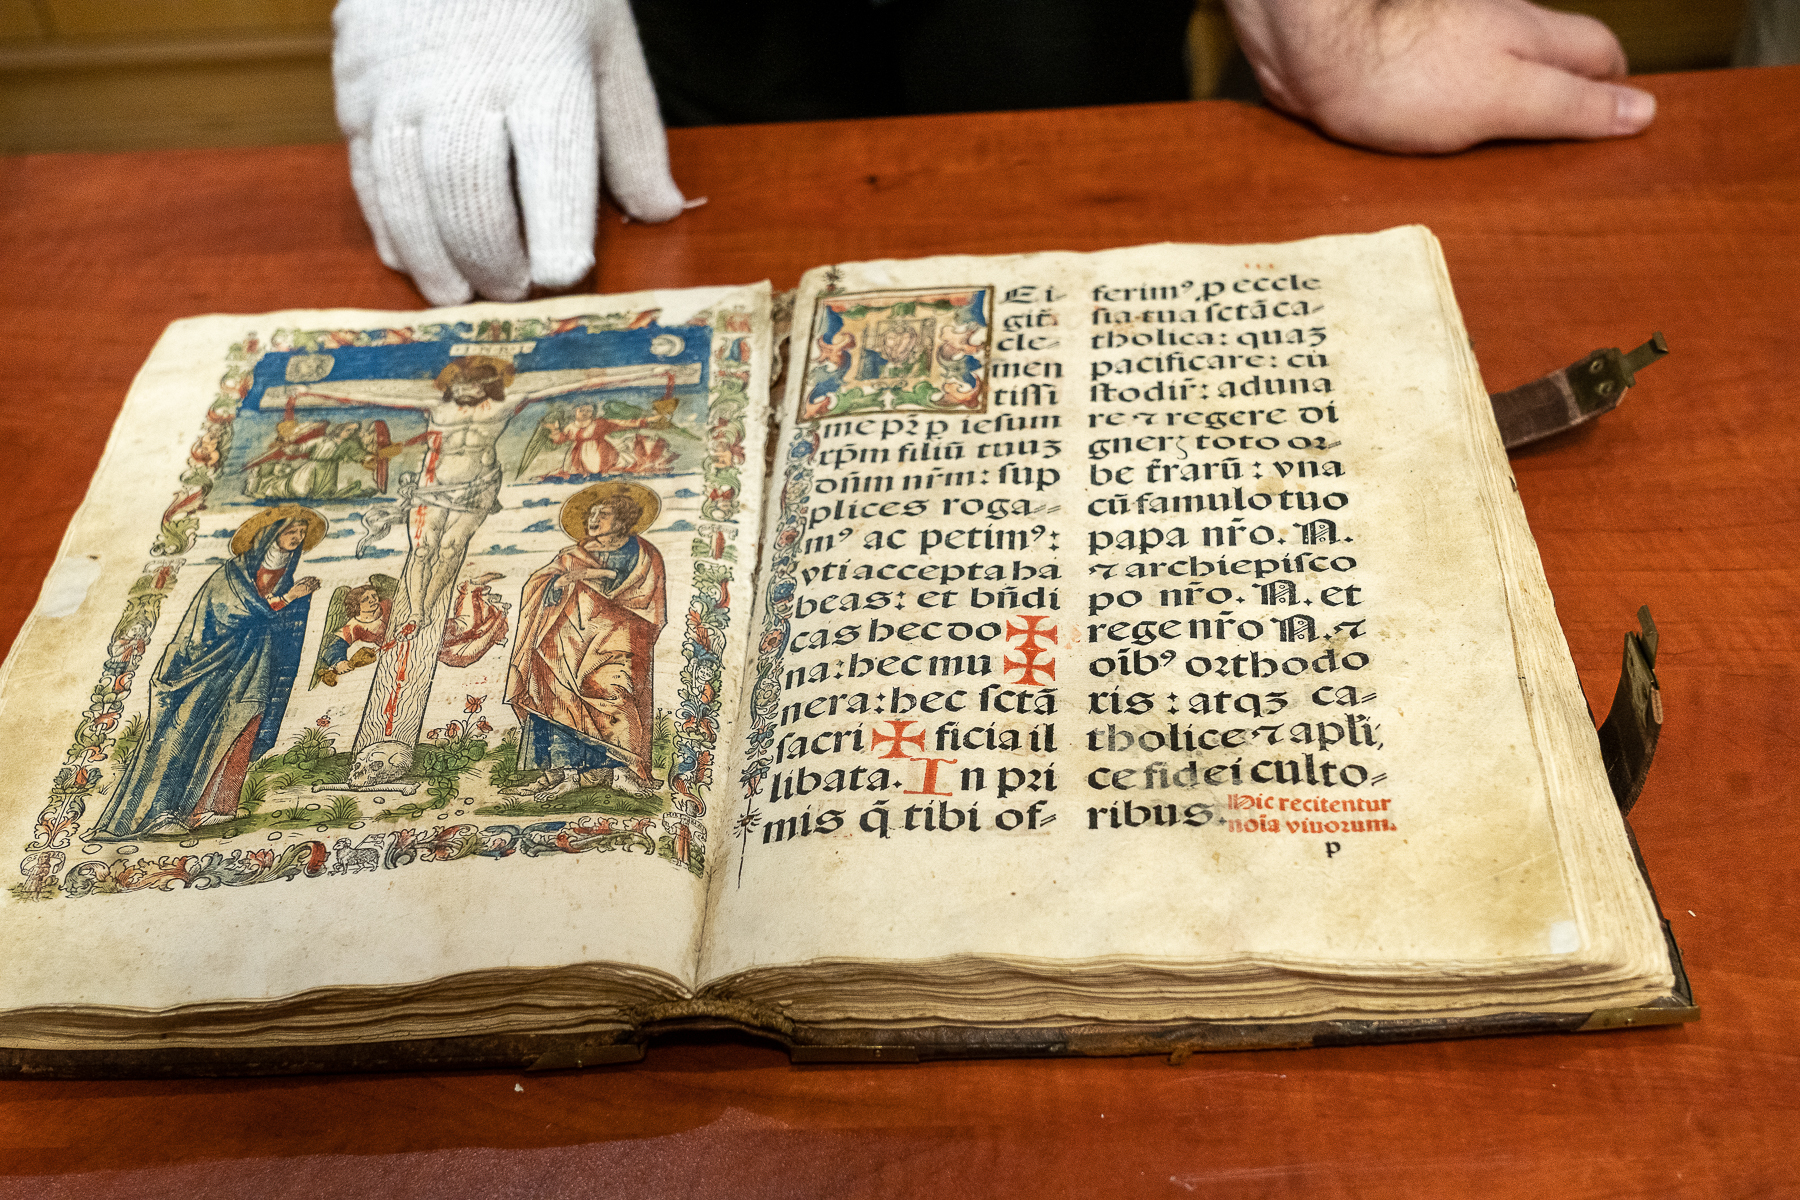 Ei-
git̃
cle-
men
tiſſi
me pr̃ p ieſum
xp̄m filiũ tuuʒ
dñm nr̃m: ſup
plices roga-
mꝰ ac petimꝰ:
vti accepta ha
beas: et bñdi
cas hec do ✠
na: hec mu ✠
nera: hec ſctã
ſacri ✠ ficia il
libata. In pri
mis q̃ tibi of-
ferimꝰ p eccle
ſia tua ſctã ca-
tholica: quaʒ
pacificare: cũ
ſtodir̃: aduna
re ⁊ regere di
gnerʒ toto or-
be t̃rarũ: vna
cũ famulo tuo
papa nr̃o. N.
⁊ archiepiſco
po nr̃o. N. et
rege nr̃o N. ⁊
oĩbꝰ orthodo
xis: atqʒ ca-
tholice ⁊ apl̃i;
ce fidei culto-
ribus. Hic recitentur
noĩa viuorum.
p